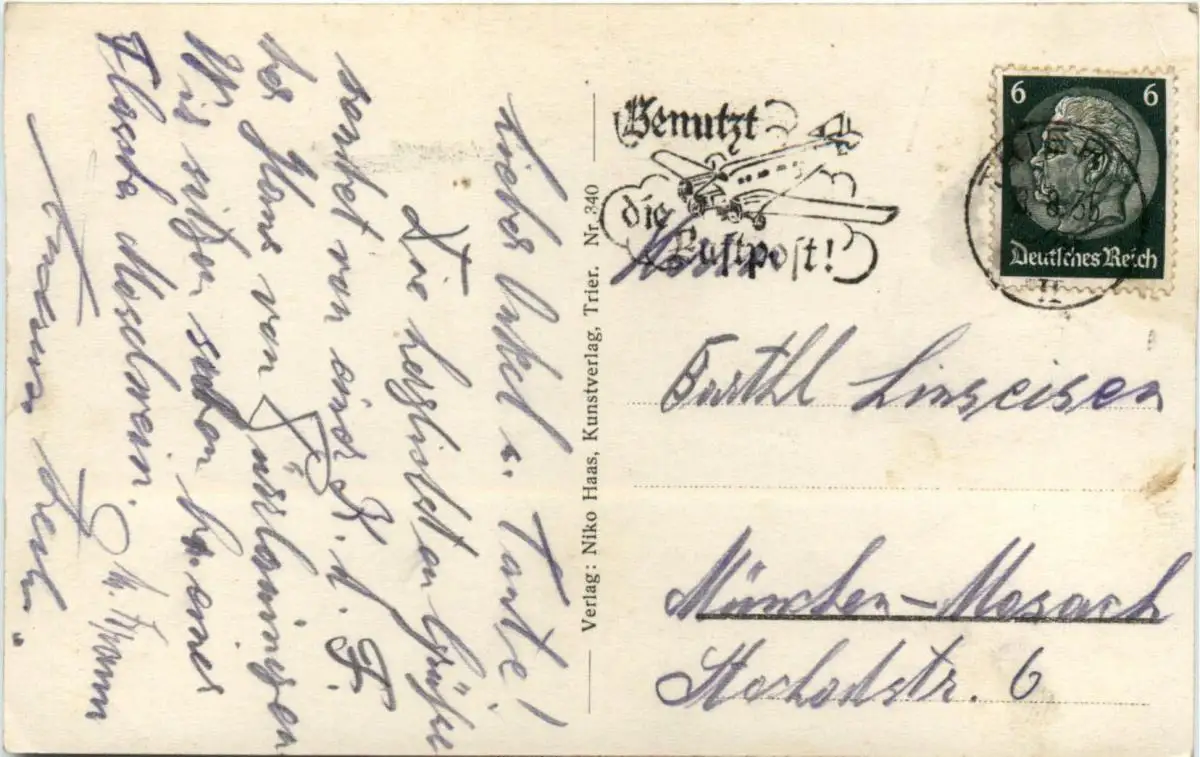 Lieber Onkel u. Tante!
Die herzlichsten Grüße
sendet von einer K. d. F.
Wir sitzen soeben bei einer
Flasche Moselwein.
Verlag: Niko Haas, Kunstverlag, Trier. Nr. 340
Benutzt
die
Luftpost!
TRIER
6 6
Deutsches Reich
Herrn
Barthl Linseisen
München-Mosach
6